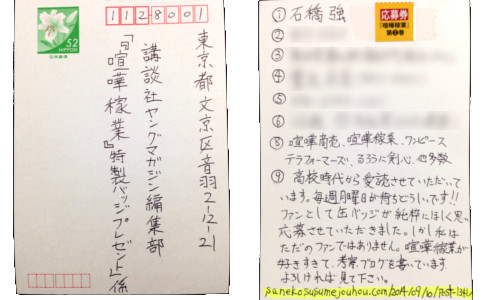 52
NIPPON
1128001
東京都文京区音羽2-12-21
講談社ヤングマガジン編集部
『喧嘩稼業』特製バッジプレゼント」係
① 石橋 強
応募券
「喧嘩稼業」
②
③
④
⑤
⑥
⑧ 喧嘩商売、喧嘩稼業、ワンピース
テラフォーマーズ、るろうに剣心、他多数
⑨ 高校時代から愛読させていただいて
います。毎週月曜日が待ちどうしいです!!
ファンとして缶バッジが純粋にほしく思い
応募させていただきました。しかし私は
ただのファンではありません。喧嘩稼業が
好きすぎて、考察ブログを書いています
よろしければ見て下さい。